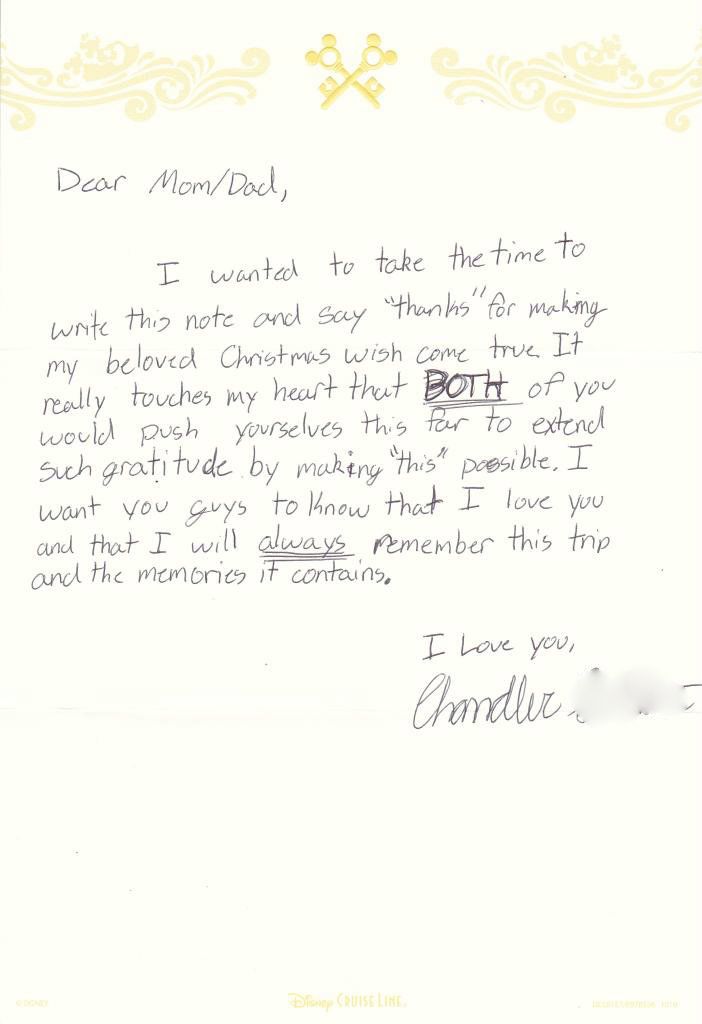 Dear Mom/Dad,
I wanted to take the time to
write this note and say "thanks" for making
my beloved Christmas wish come true. It
really touches my heart that BOTH of you
would push yourselves this far to extend
such gratitude by making "this" possible. I
want you guys to know that I love you
and that I will always remember this trip
and the memories it contains.
I Love you,
Chandler
© DISNEY
Disney CRUISE LINE.